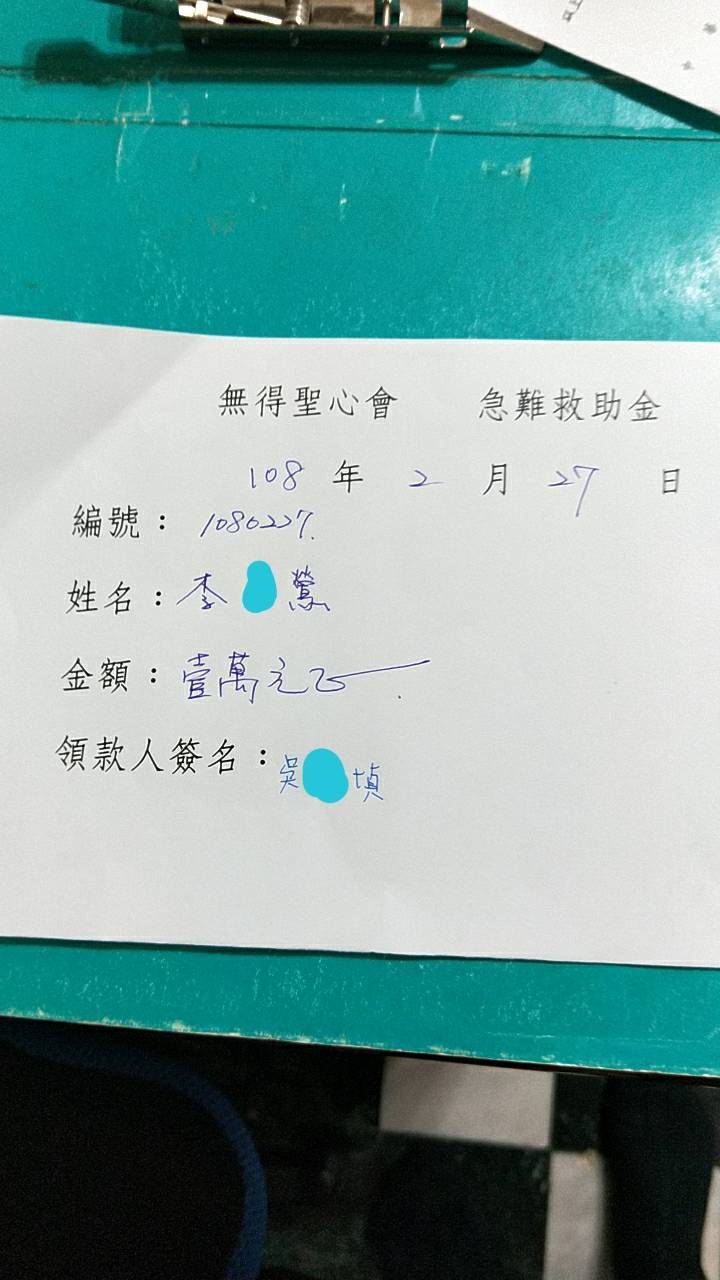 無得聖心會 急難救助金
108 年 2 月 27 日
編號：1080227.
姓名：李 鶯
金額：壹萬元正
領款人簽名：吳 填